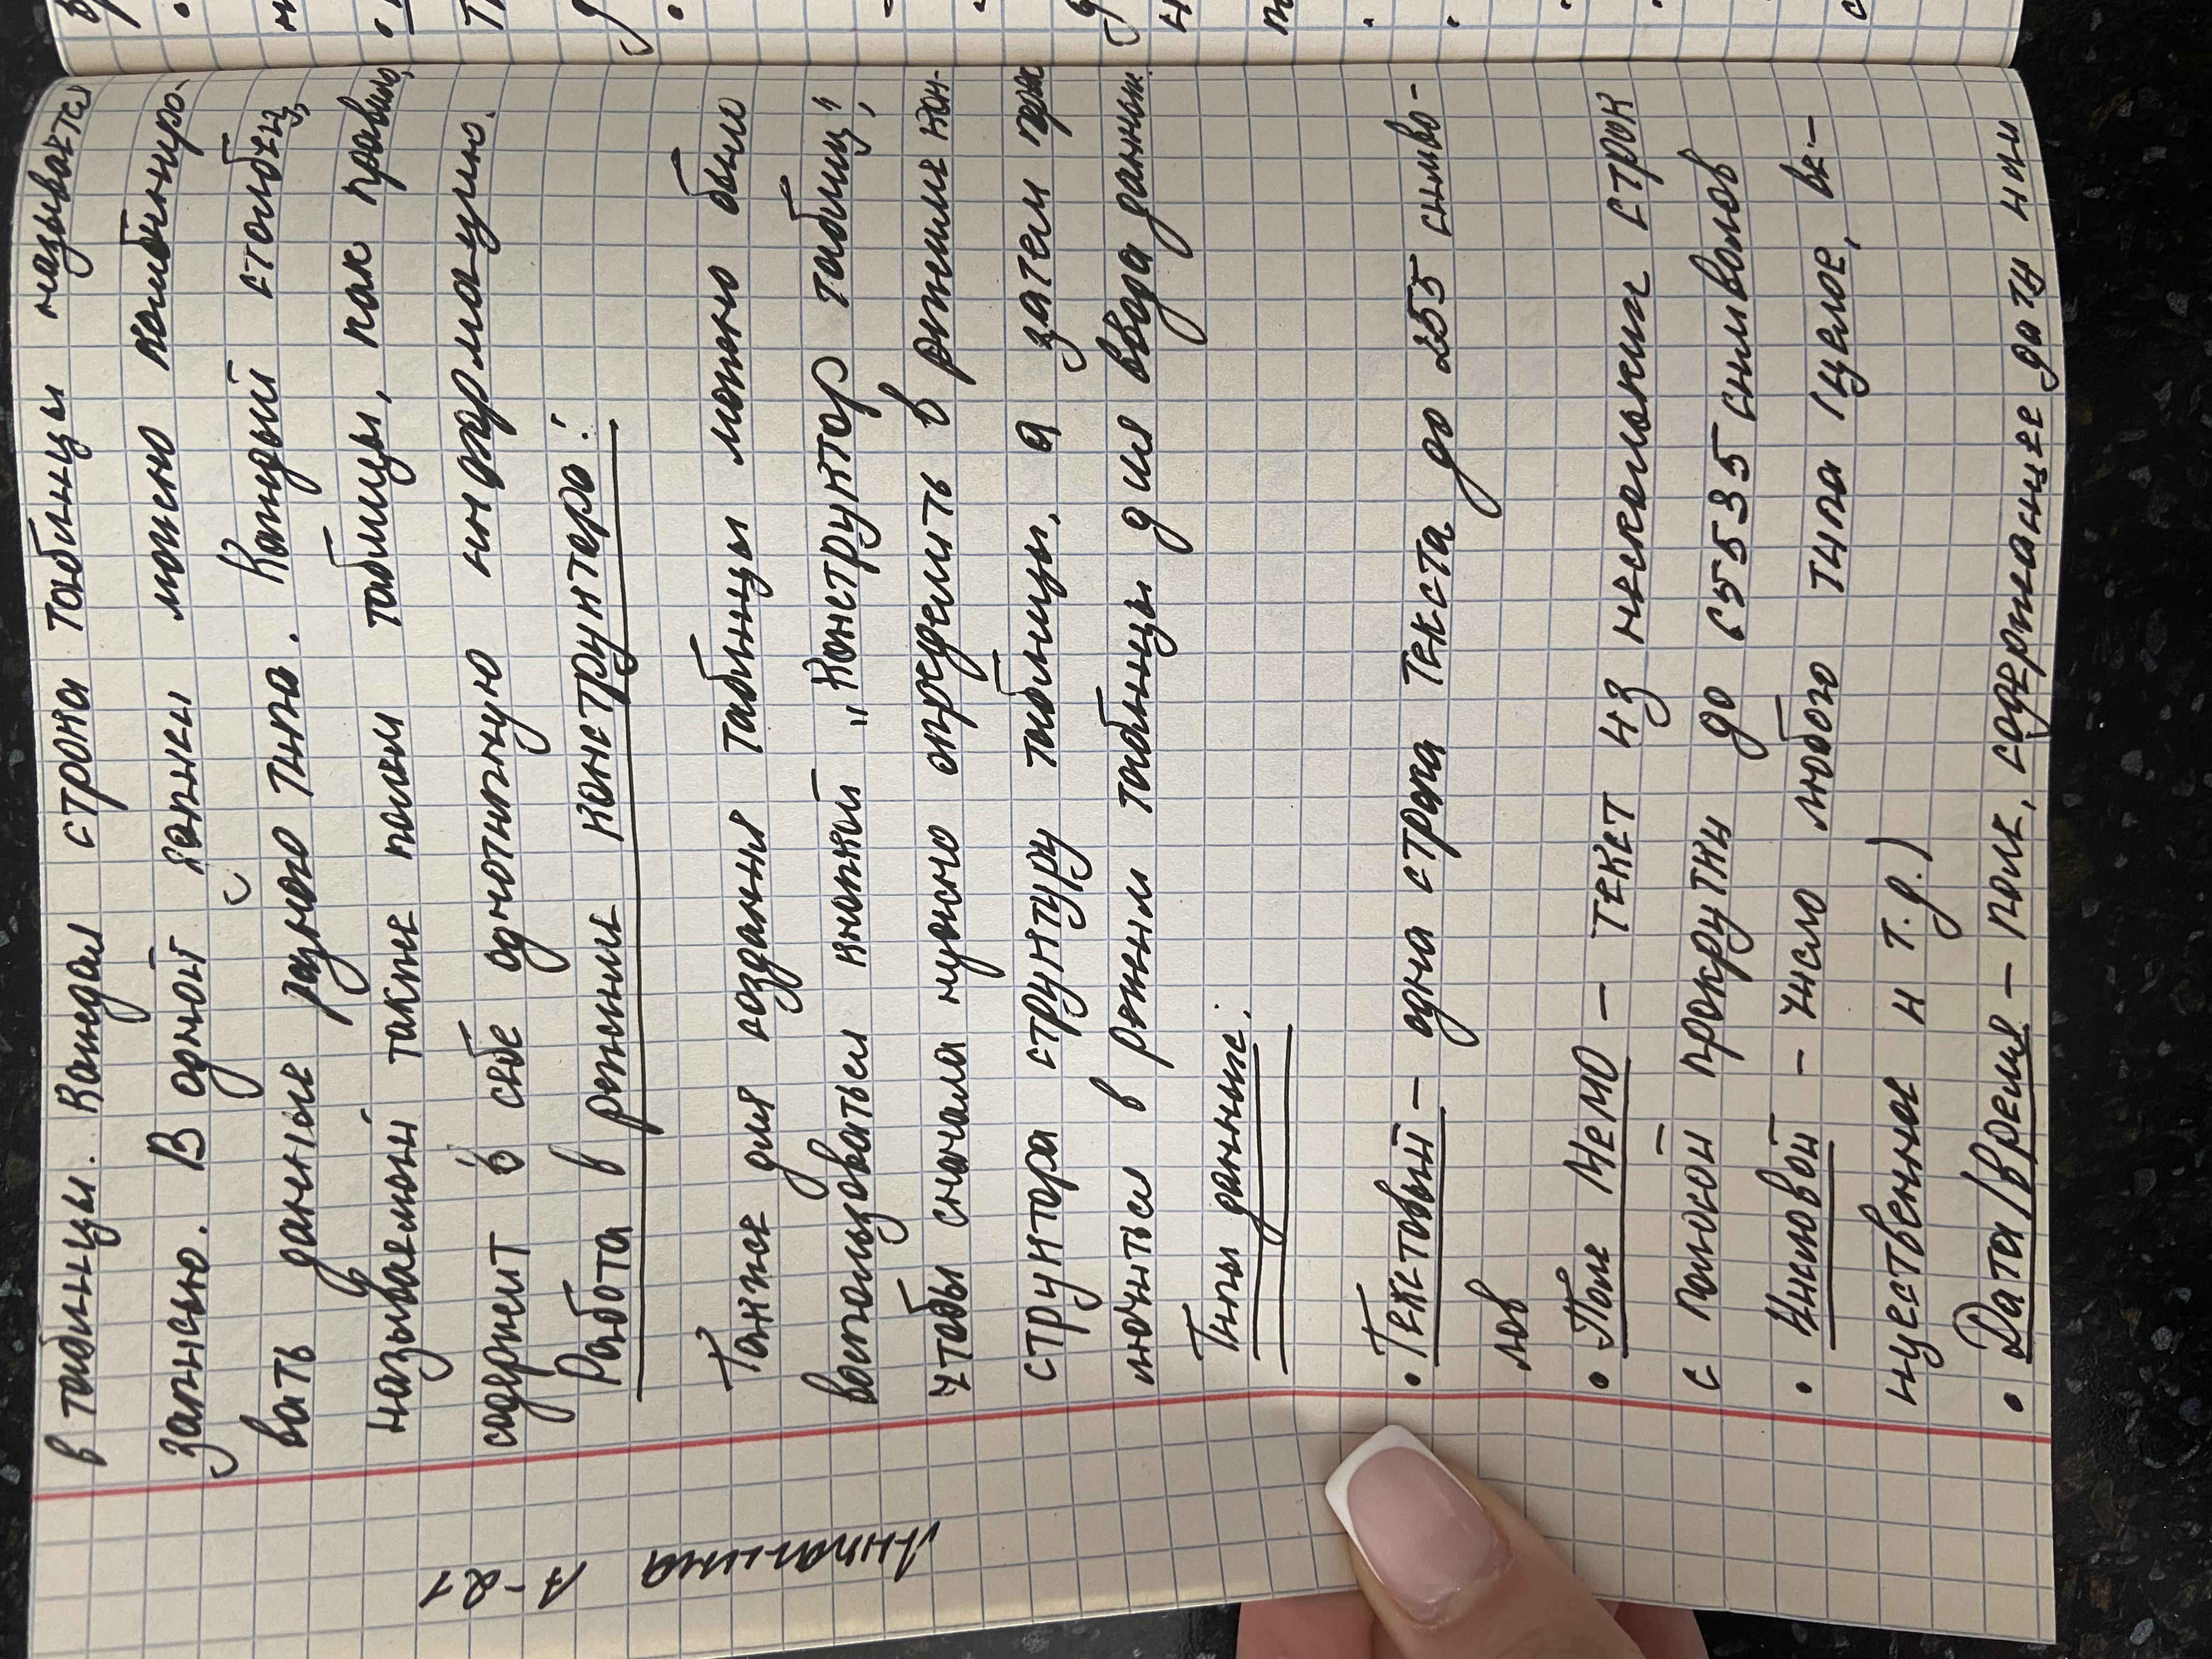 в таблицы. Каждая строка таблицы называется
записью. В одной записи можно комбиниро-
вать данные разного типа. Каждый столбец,
называемый также полем таблицы, как правило,
содержит в себе однотипную информацию.
Работа в режиме конструктера:
Также для создания таблицы можно было
воспользоваться кнопкой „Конструктор таблиц",
чтобы сначала нужно определить в режиме кон-
структора структуру таблицы, а затем
в режим таблицы для ввода данных.
Типы данные:
• Текстовый - одна строка текста до 255 симво-
лов
• Поле Мемо - текст из нескольких строк
с полосой прокрутки до 65535 символов
• Числовой - число любого типа (целое, ве-
щественное и т.д.)
• Дата/время - поле, содержащее даты или
А-21